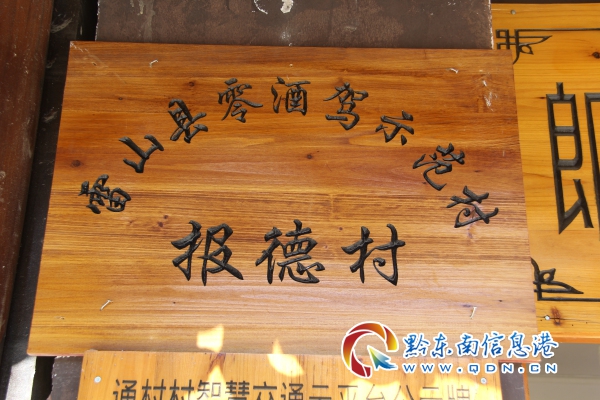 雷山县零酒驾示范村
报德村
通村村智慧交通云平台公示牌
黔东南信息港
WWW.QDN.CN